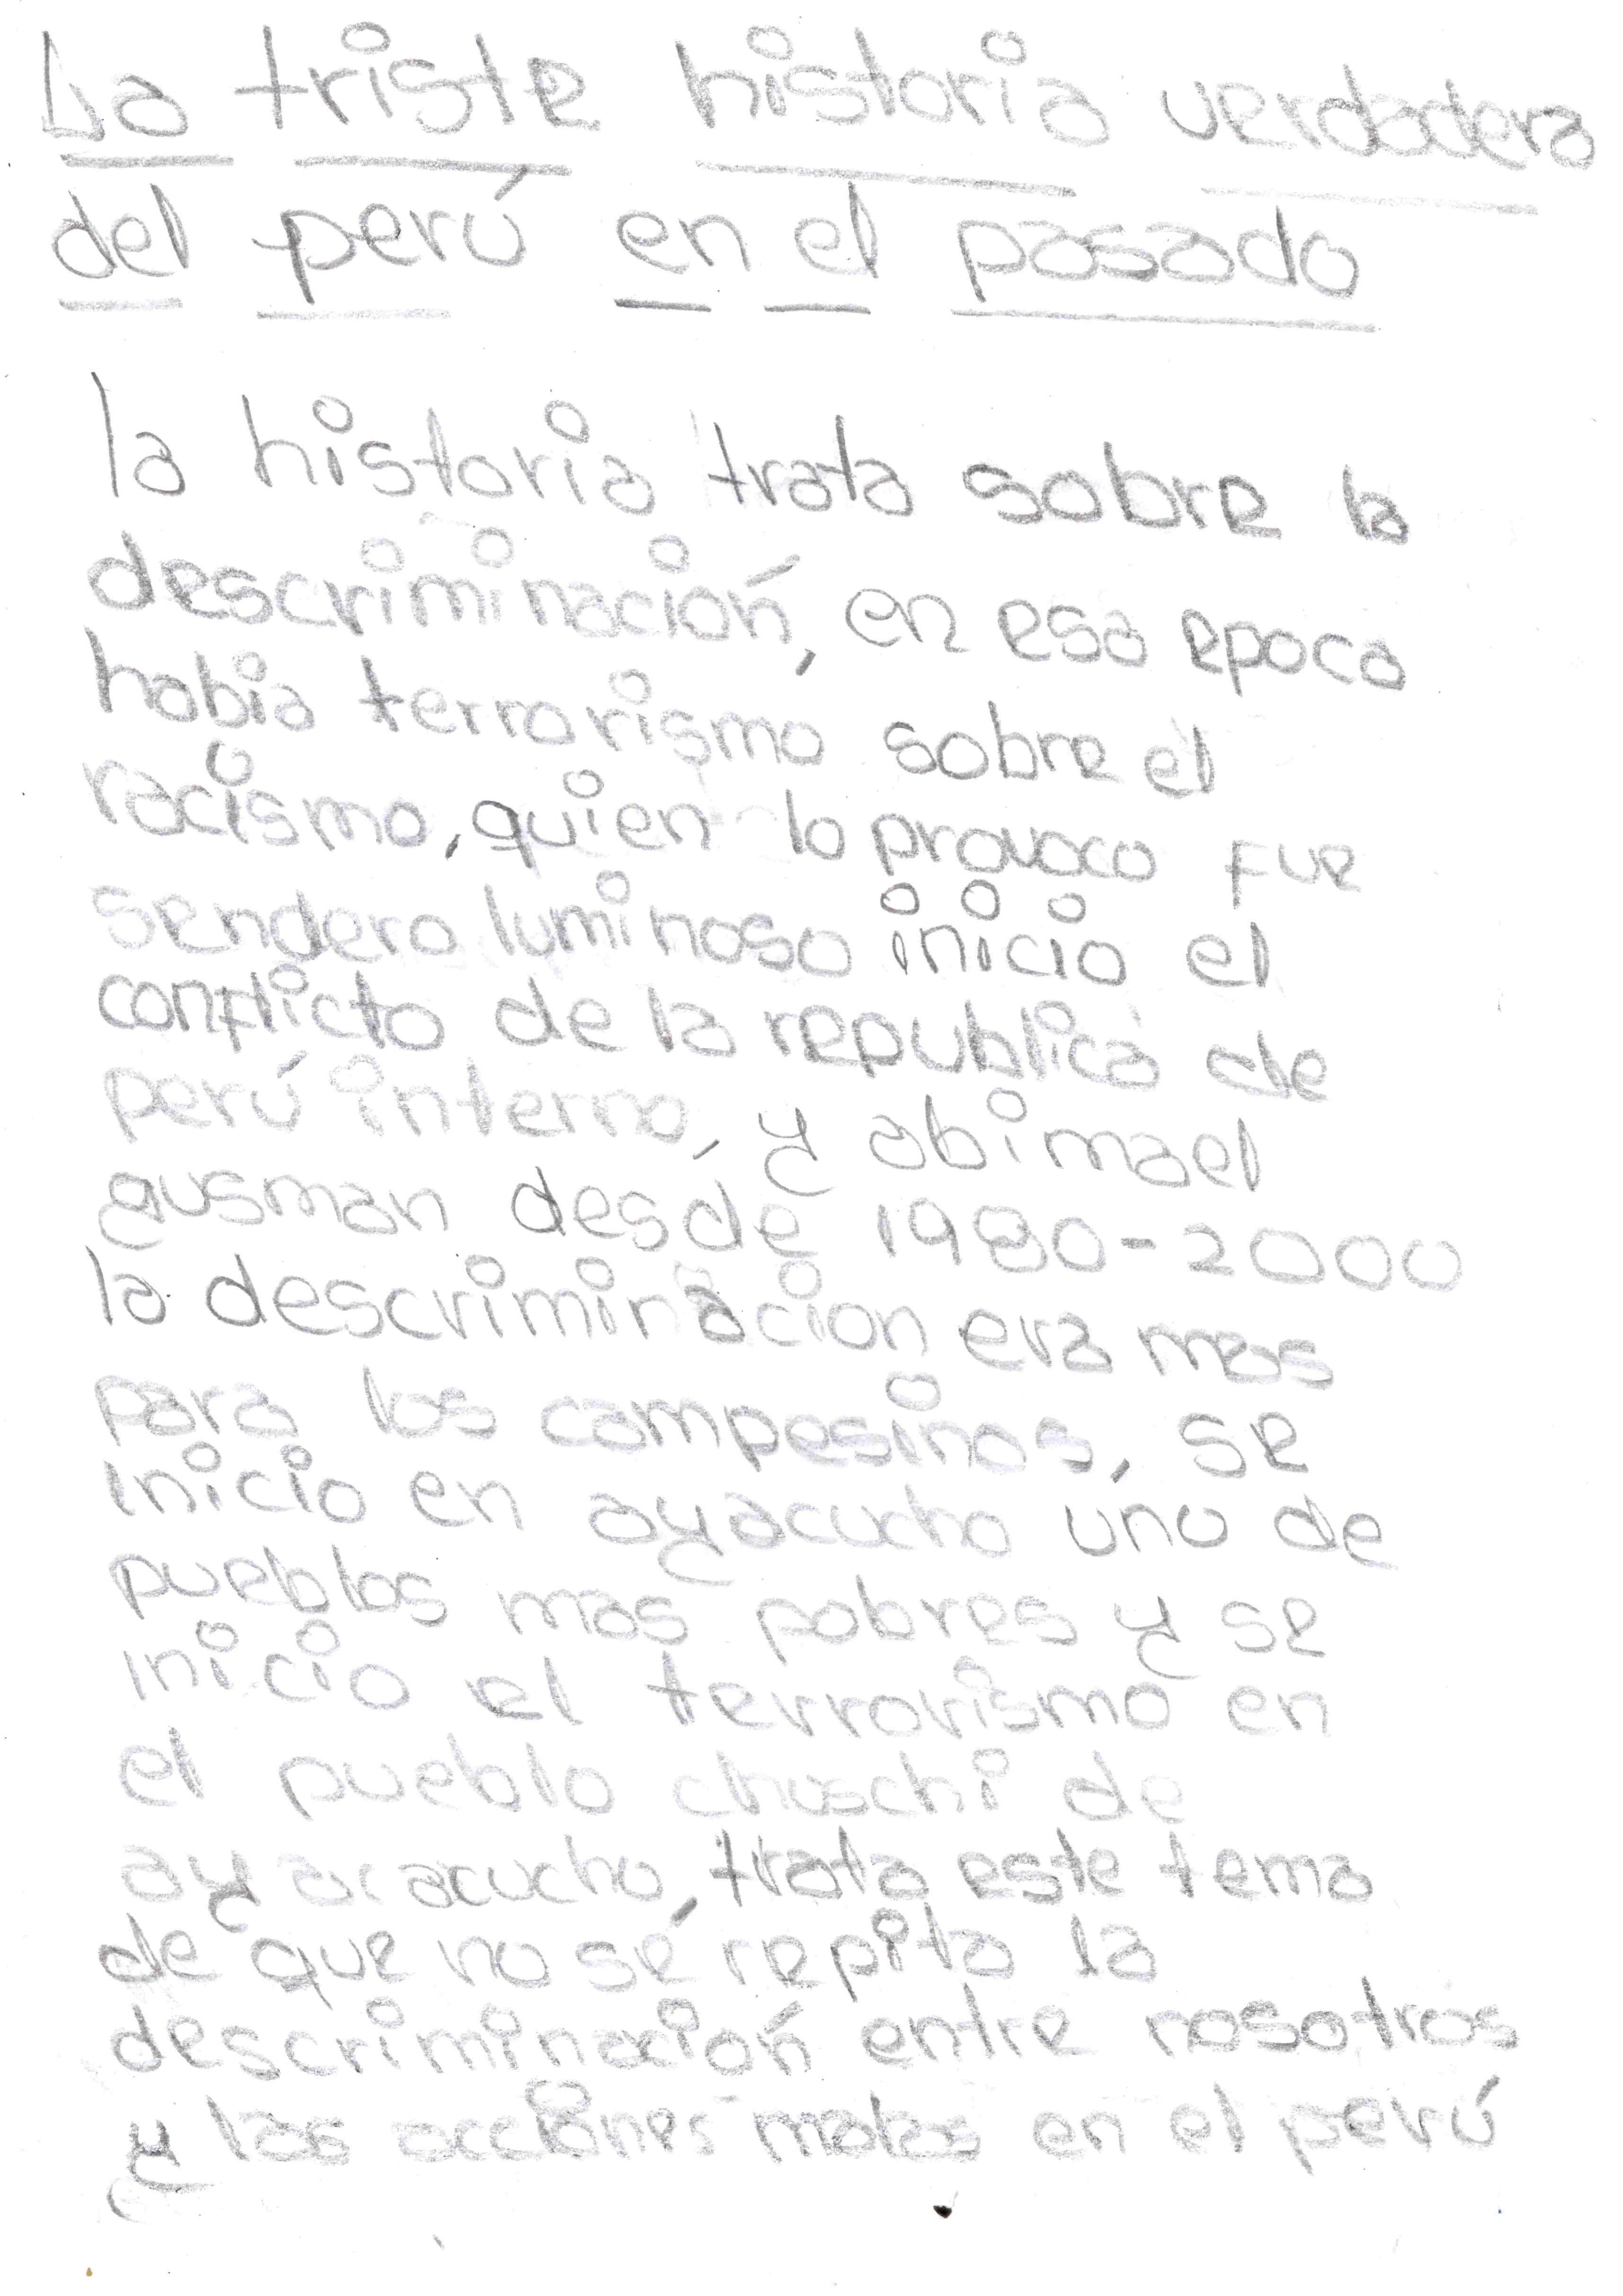 La triste historia verdadera
del perú en el pasado
la historia trata sobre la
descriminación, en esa epoca
habia terrorismo sobre el
racismo, quien lo provoco fue
sendero luminoso inicio el
conflicto de la republica de
perú interno, y abimael
gusman desde 1980-2000
la descriminacion era mas
para los campesinos, se
inicio en ayacucho uno de
pueblos mas pobres y se
inicio el terrorismo en
el pueblo chuschi de
ayaracucho, trata este tema
de que no se repita la
descriminación entre nosotros
y las acciones malas en el perú